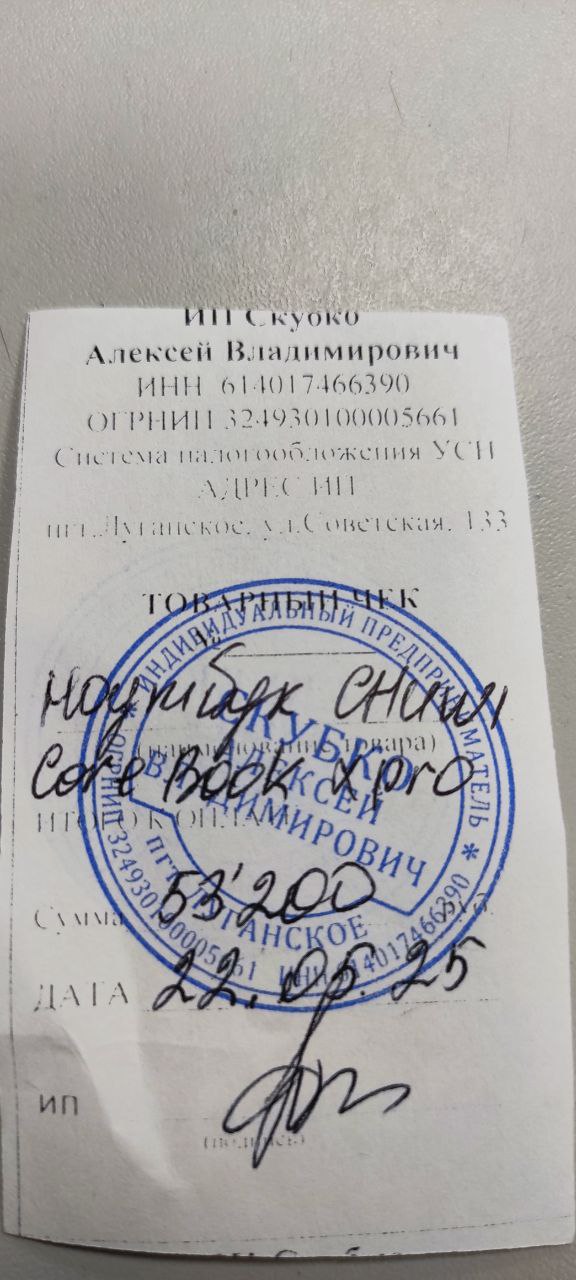 ИП Скубко
Алексей Владимирович
ИНН 614017466390
ОГРНИП 324930100005661
Система налогообложения УСН
АДРЕС ИП
пгт.Луганское, ул.Советская, 133
ТОВАРНЫЙ ЧЕК
№
Ноутбук CHUWI
(наименование товара)
Core Book X pro
ИТОГО К ОПЛАТЕ
Сумма 53'200 руб.
ДАТА 22.05.25
ИП
(подпись)
* ИНДИВИДУАЛЬНЫЙ ПРЕДПРИНИМАТЕЛЬ *
ОГРНИП 324930100005661 ИНН 614017466390
СКУБКО
АЛЕКСЕЙ
ВЛАДИМИРОВИЧ
ПГТ ЛУГАНСКОЕ